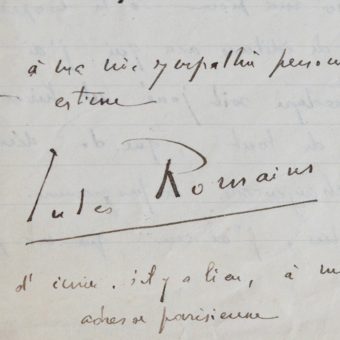 à ma vive sympathie perso
estime
Jules Romains
d'écrire, s'il y a lieu, à m
adresse parisienne